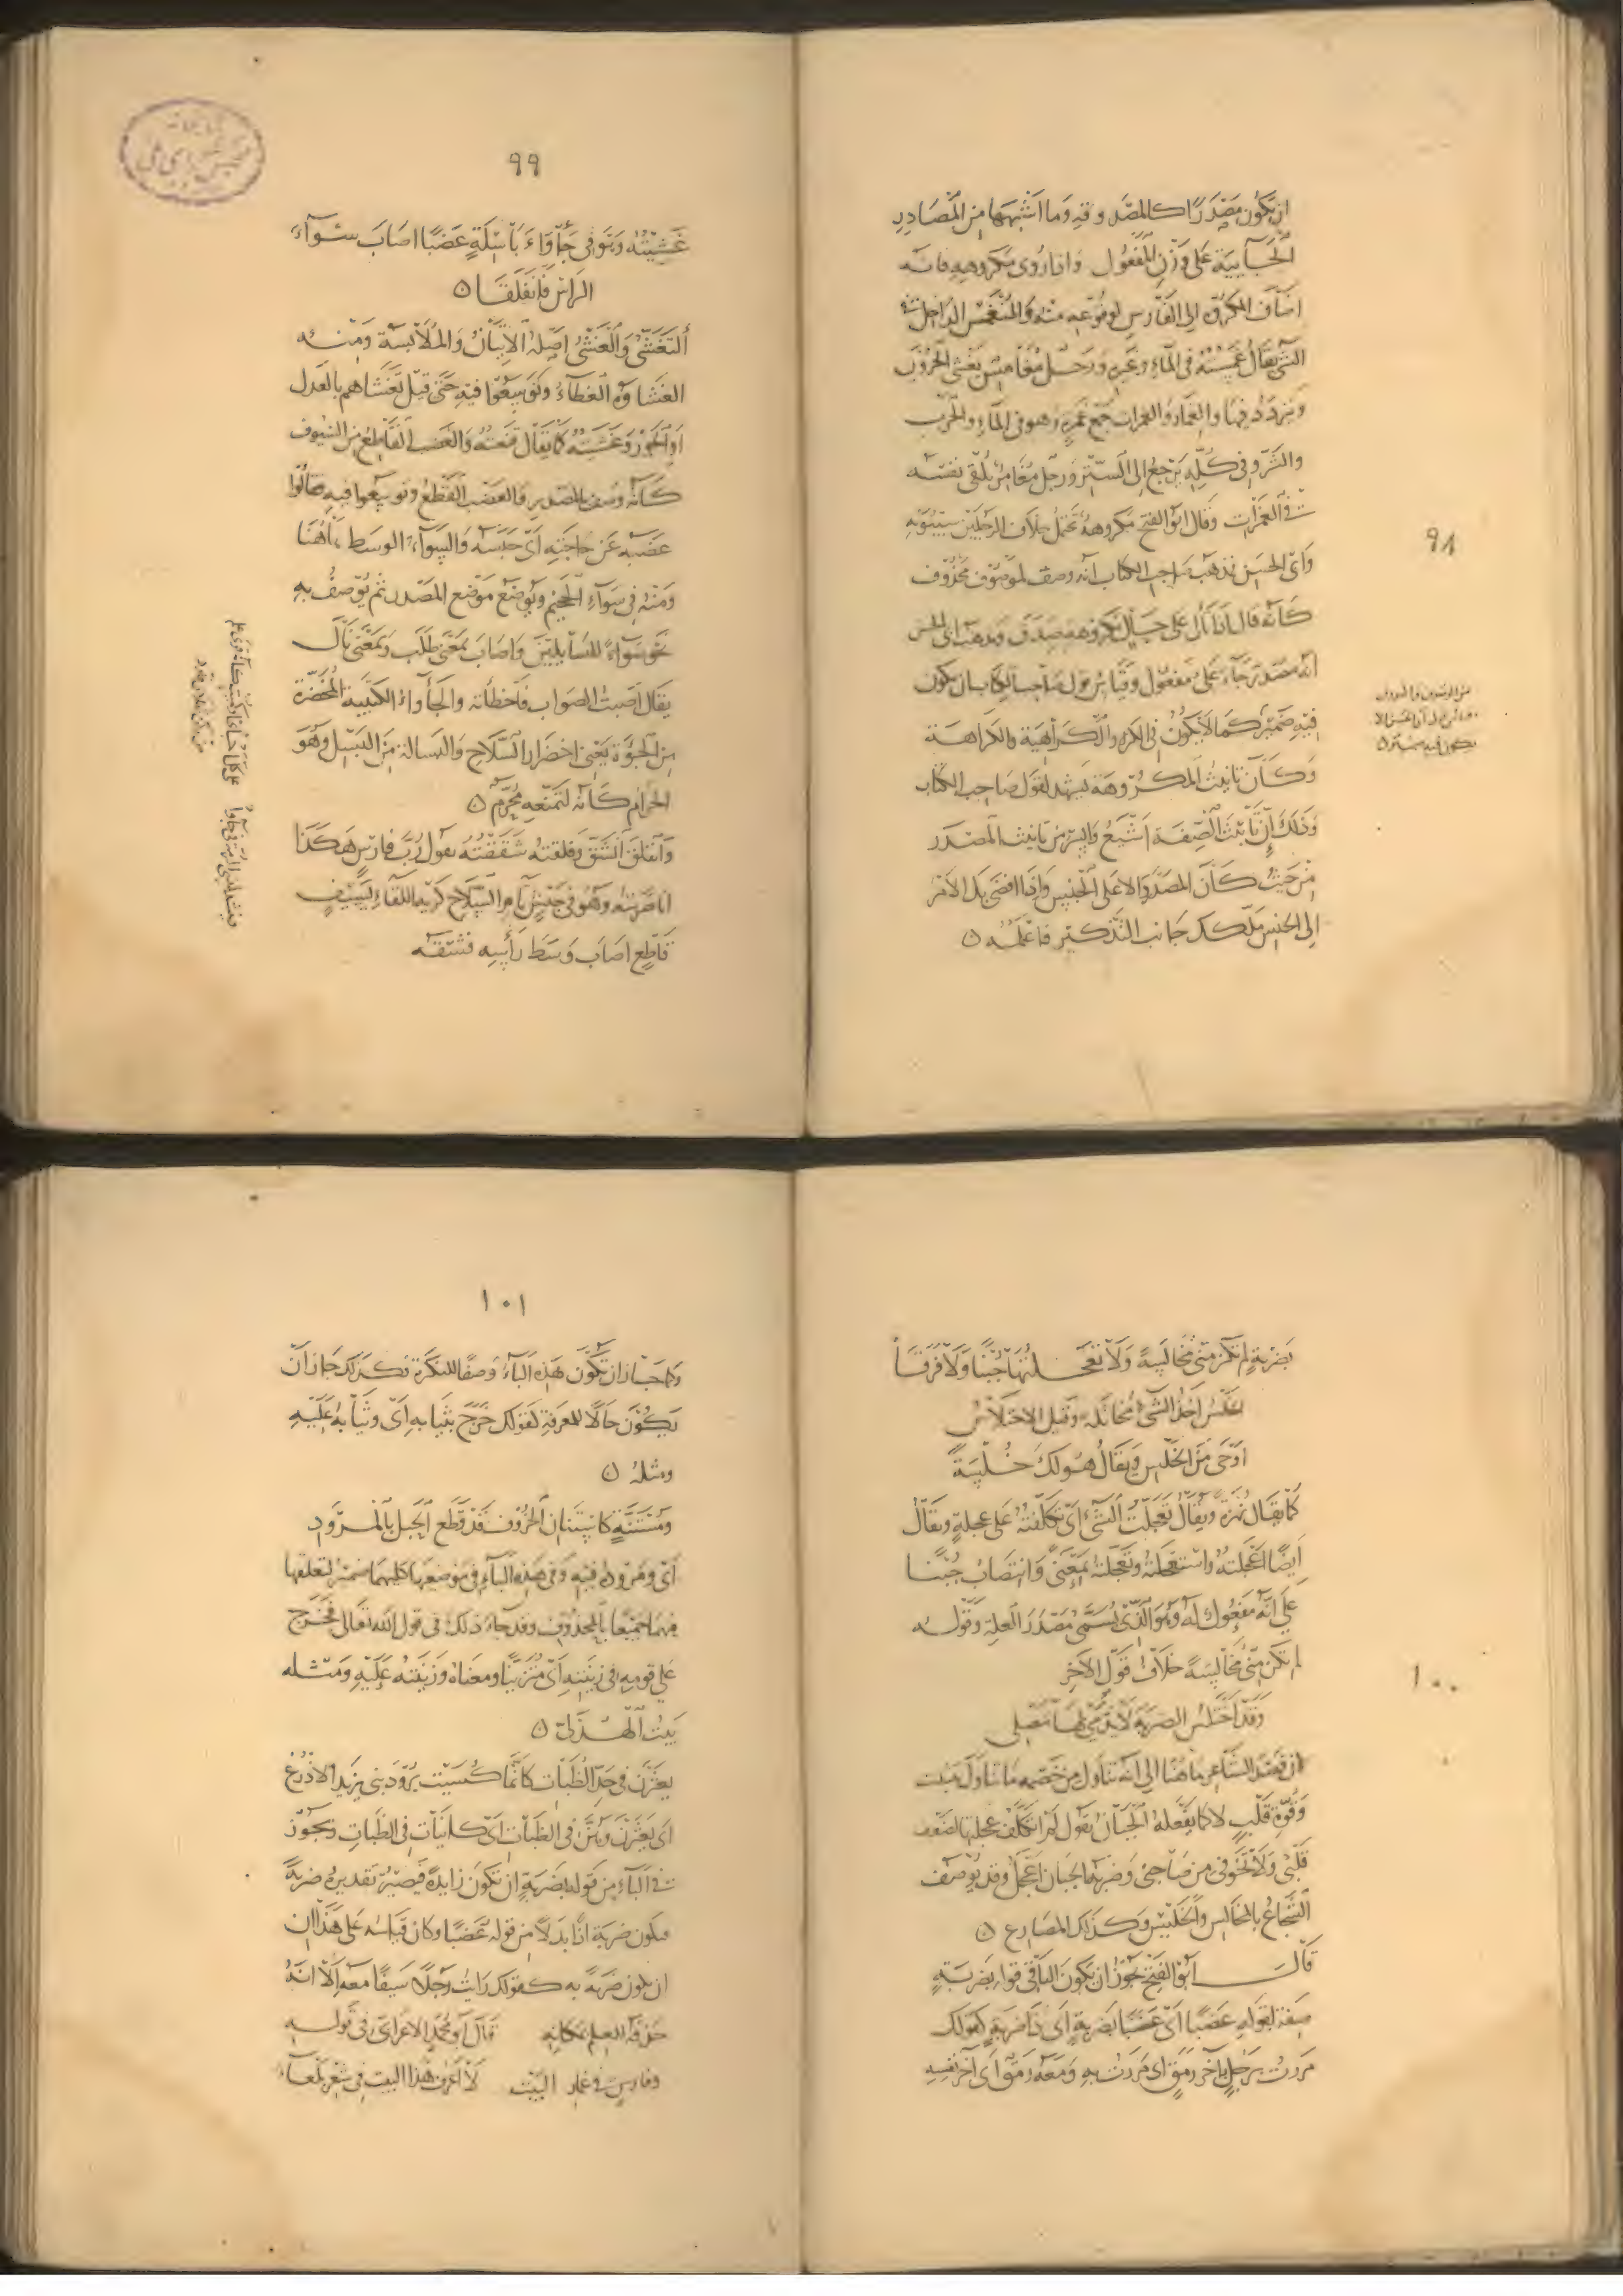 ٩٨
ان يكون مصدرًا كالمصدوقة وما اشبهها من المصادر
الجايية على وزن المفعول واذا روى مكروهه فانه
اضاف المكروه الى الفارس لوقوعه منه والمنغمس الداخل في
الشي يقال غمسته في الماء وغيره ورجل مغامس يغشى الحروب
ويتردد فيها والغمار والغمرات جمع غمرة وهو في الماء والحرب
والشر وفي كله يرجع الى الستر ورجل مغامر يلقى نفسه
في الغمرات وقال ابو الفتح مكروهه تحتمل خلاف الرجلين سيبويه
وابى الحسن فمذهب صاحب الكتاب انه وصف لموصوف محذوف
كانه قال اذا تالى على حال مكروهه صدق ومذهب ابى الحسن
انه مصدر جاء على مفعول وقياس قول صاحب الكتاب ان يكون
فيه ضمير كما لا يكون في الكره والكراهية والكراهة
وكأن تانيث المكروهة يشهد لقول صاحب الكتاب
وذلك إن تأنيث الصفة اشيع وايسر من تانيث المصدر
من حيث كان المصدر دالا على الجنس واذا افضى بك الامر
الى الجنس ملكك جانب التذكير فاعلمه
٩٩
غشيته وهو في جأواء باسلة عضبًا اصاب سوآء
الراس فانفلقا
التغشى والغشى اصله الاتيان والملابسة ومنه
الغشاوة الغطاء وتوسعوا فيه حتى قيل تغشاهم بالعدل
او الجور وغشيته كما يقال قنعته والعضب القاطع من السيوف
كأنه وصف بالمصدر فالعضب القطع وتوسعوا فيه فقالوا
عضبه عن حاجته اى حبسه والسوآء الوسط هاهنا
ومنه في سواء الجحيم ويوضع موضع المصدر ثم يوصف به
نحو سواء للسايلين واصاب بمعنى طلب وبمعنى نال
يقال اصبت الصواب فاخطأته والجأواء الكتيبة المخضرة
من الجؤوة يعنى اخضرار السلاح والبسالة من البسل وهو
الحرام كأنه لتمنعه محرم
وانفلق انشق وفلقته شققته يقول رب فارس هكذا
انا ضربته وهو في جيش تام السلاح كريه اللقاء بسيف
قاطع اصاب وسط رأسه فشقه
١٠٠
بضربة لم تكن منى مخالسة ولا تعجلتها جبنا ولا فرقا
الخلس اخذ الشي مخاتلة وقيل الاختلاس
اوحى من الخلس ويقال هو لك خلسة
كما يقال نهزة ويقال تعجلت الشي اى تكلفته على عجلة ويقال
ايضا اعجلته واستعجلته وتعجلته بمعنى وانتصاب جبنا
على انه مفعول له وهو الذى يسمى مصدر العلة وقوله
لم تكن منى مخالسة خلاف قول الآخر
وقد اختلس الضربة لا يدمى لها نصلى
ان قصد الشاعر هاهنا الى انه تناول من خصمه ما تناول بثبت
وقوة قلب لا كما يفعله الجبان يقول لم اتكلف عجلها لضعف
قلبى ولا لخوفى من صاحبى وضربة الجبان اعجل وقد يوصف
الشجاع بالمخالس والخليس وكذلك المصارع
قال ابو الفتح يجوز ان يكون الباء في قوله بضربة
صفة لقوله عضبا اى عضبا بضربة اى ذا ضربة كقولك
مررت برجل بآخر رمق اى مررت به ومعه رمق اى آخر نفسه
١٠١
وكما جاز ان تكون هذه الباء وصفا للنكرة فكذلك جاز ان
يكون حالا للمعرفة كقولك خرج بثيابه اى وثيابه عليه
ومثله
ومستنة كاستنان الخروف قد قطع الحبل بالمرود
اى ومروده فيه وفي هذه الباء في موضعها كليهما ضمير لتعلقها
فيهما جميعا بالمحذوف وقد جاء ذلك في قول الله تعالى فخرج
على قومه في زينته اى متزينا ومعناه وزينته عليه ومثله
بيت الهذلى
يعثرن في حد الظبات كانما كسيت برود بنى يزيد الاذرع
اى يعثرن وهن في الظبات اى كاينات في الظبات ويجوز
في الباء من قوله بضربة ان تكون زايدة فيصير تقديره ضربة
فيكون ضربة اذا بدلا من قوله عضبا وكان قياسه على هذا ان
ان يكون ضربة به كقولك رايت رجلا سيفا معه الا انه
حذفه للعلم بمكانه قال ابو محمد الاعرابى في قوله
وفارس في غمار البيت لا اعرف هذا البيت في شعر بلعاء